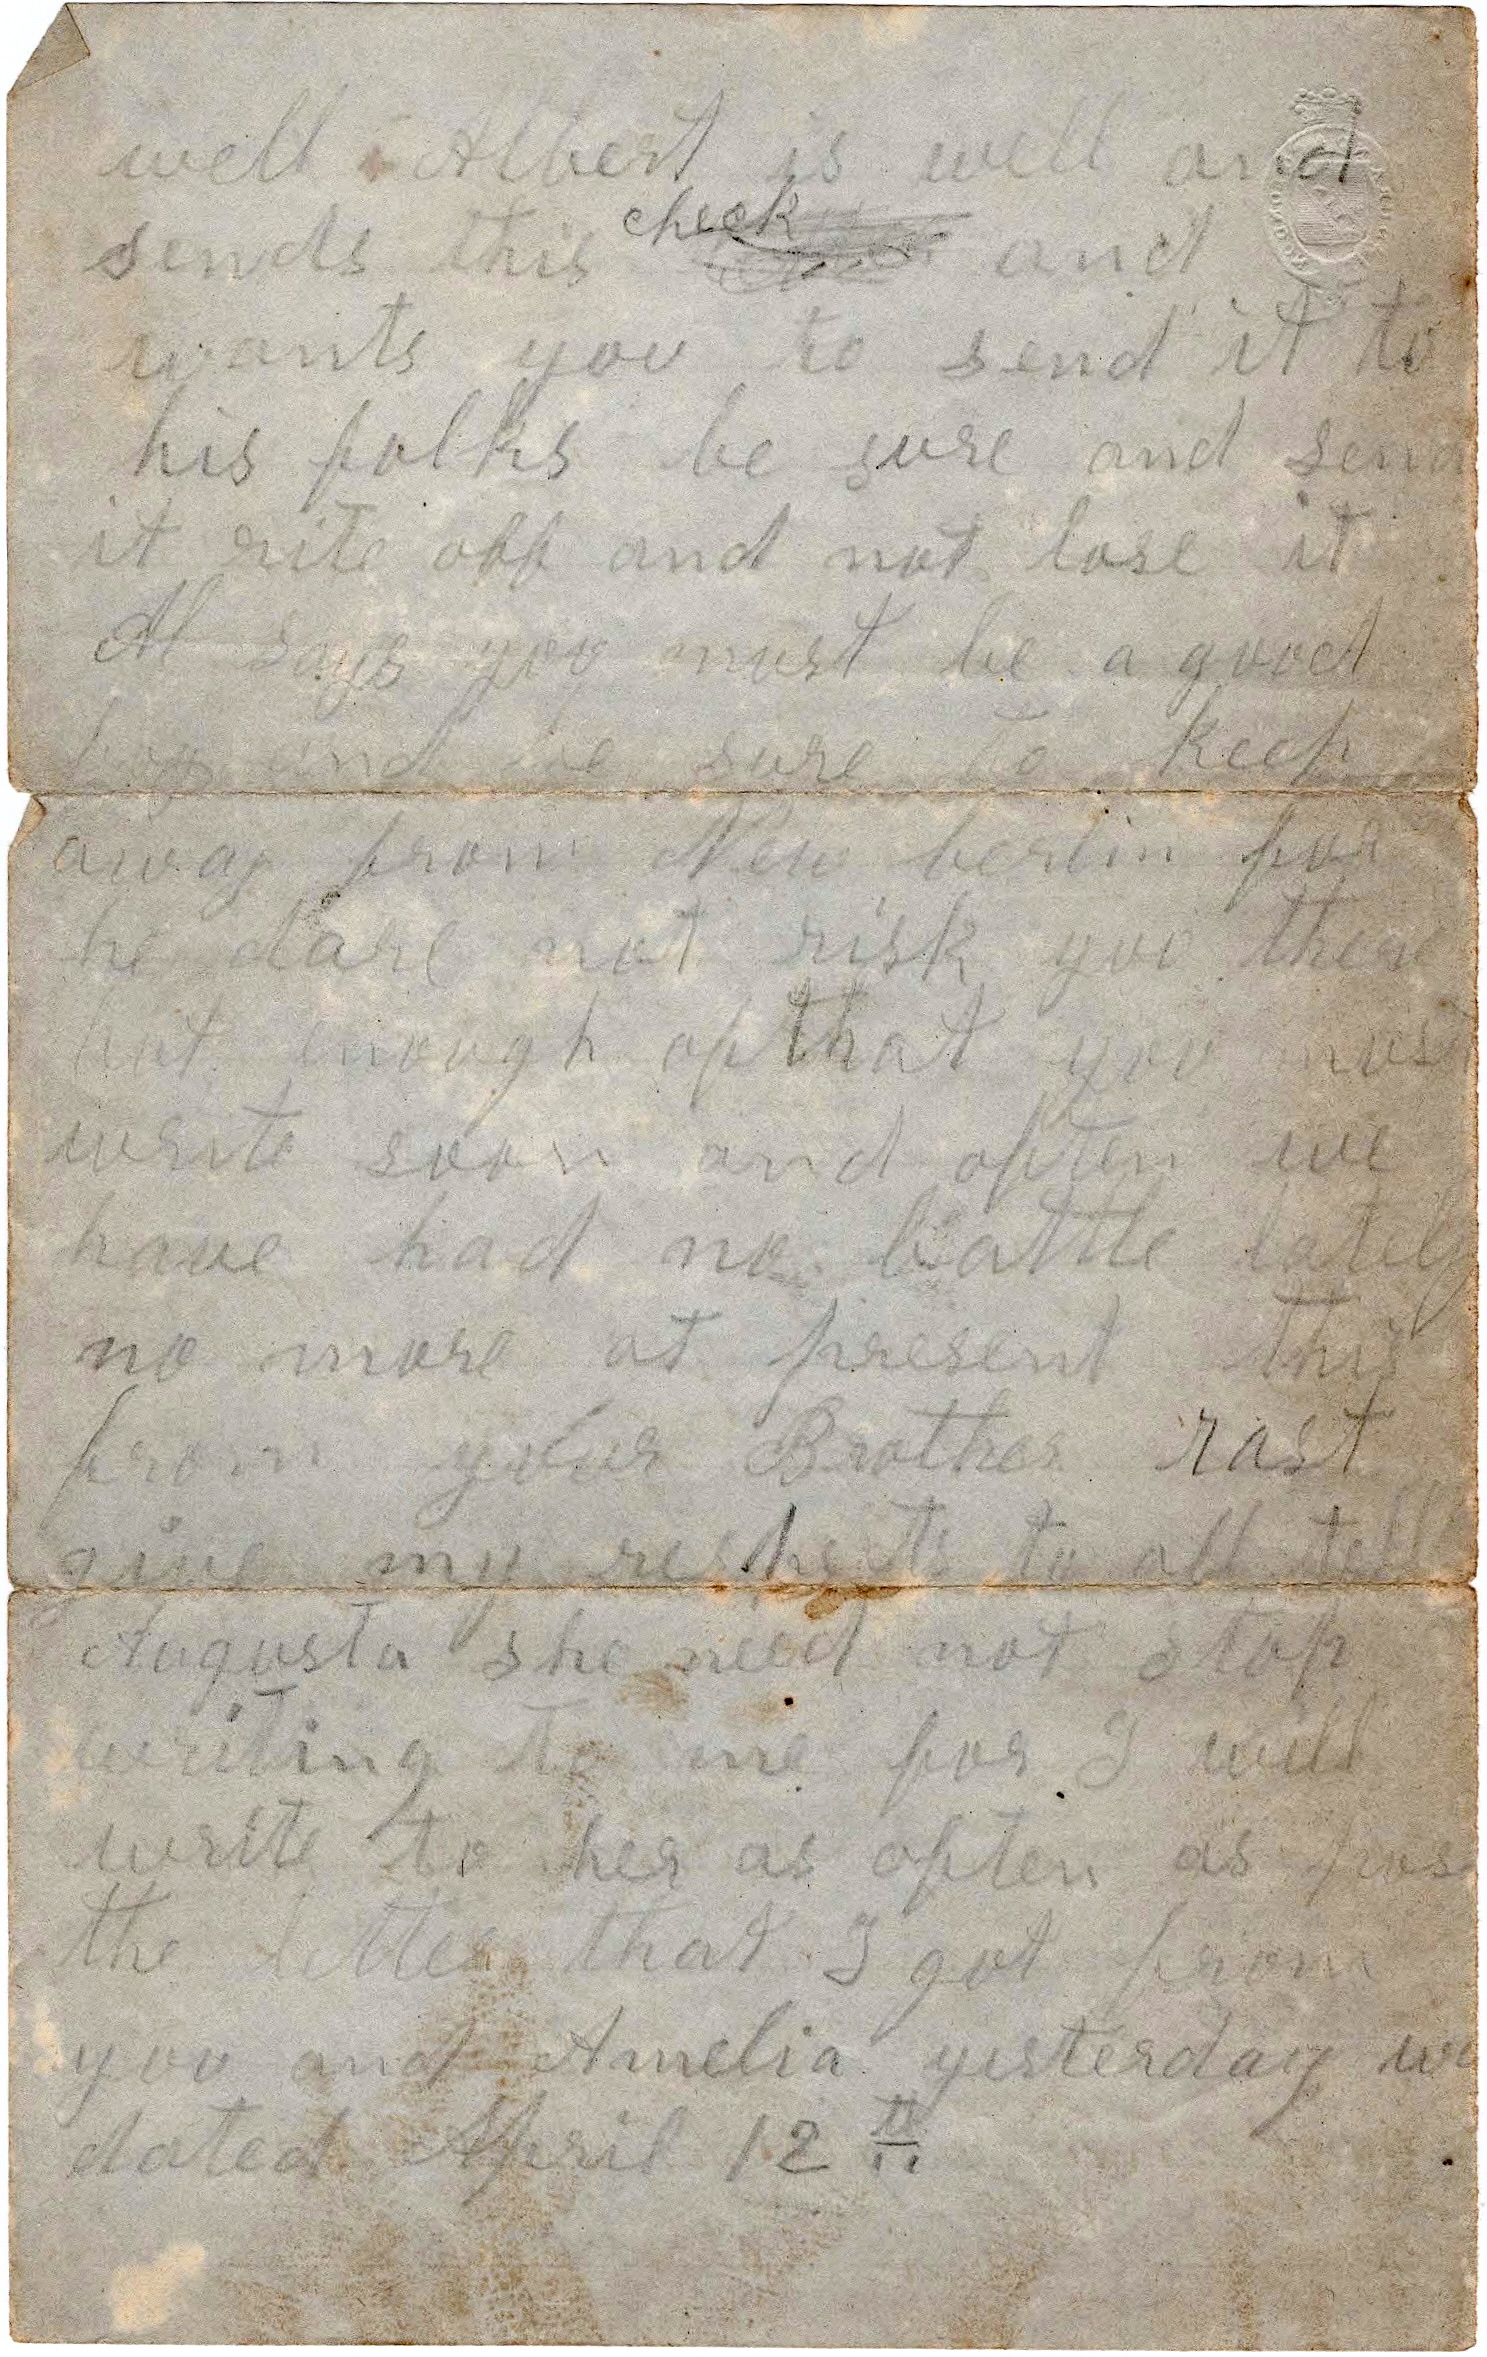 well Albert is well and
sends this check and
wants you to send it to
his folks be sure and send
it rite off and not lose it
Al says you must be a good
boy and be sure to keep
away from New berlin for
he dare not risk you there
but enough of that you must
write soon and often we
have had no battle lately
no more at present this
from your Brother rast
give my respects to all tell
Augusta she need not stop
writing to me for I will
write to her as often as pos
the letter that I got from
you and Amelia yesterday
dated April 12th